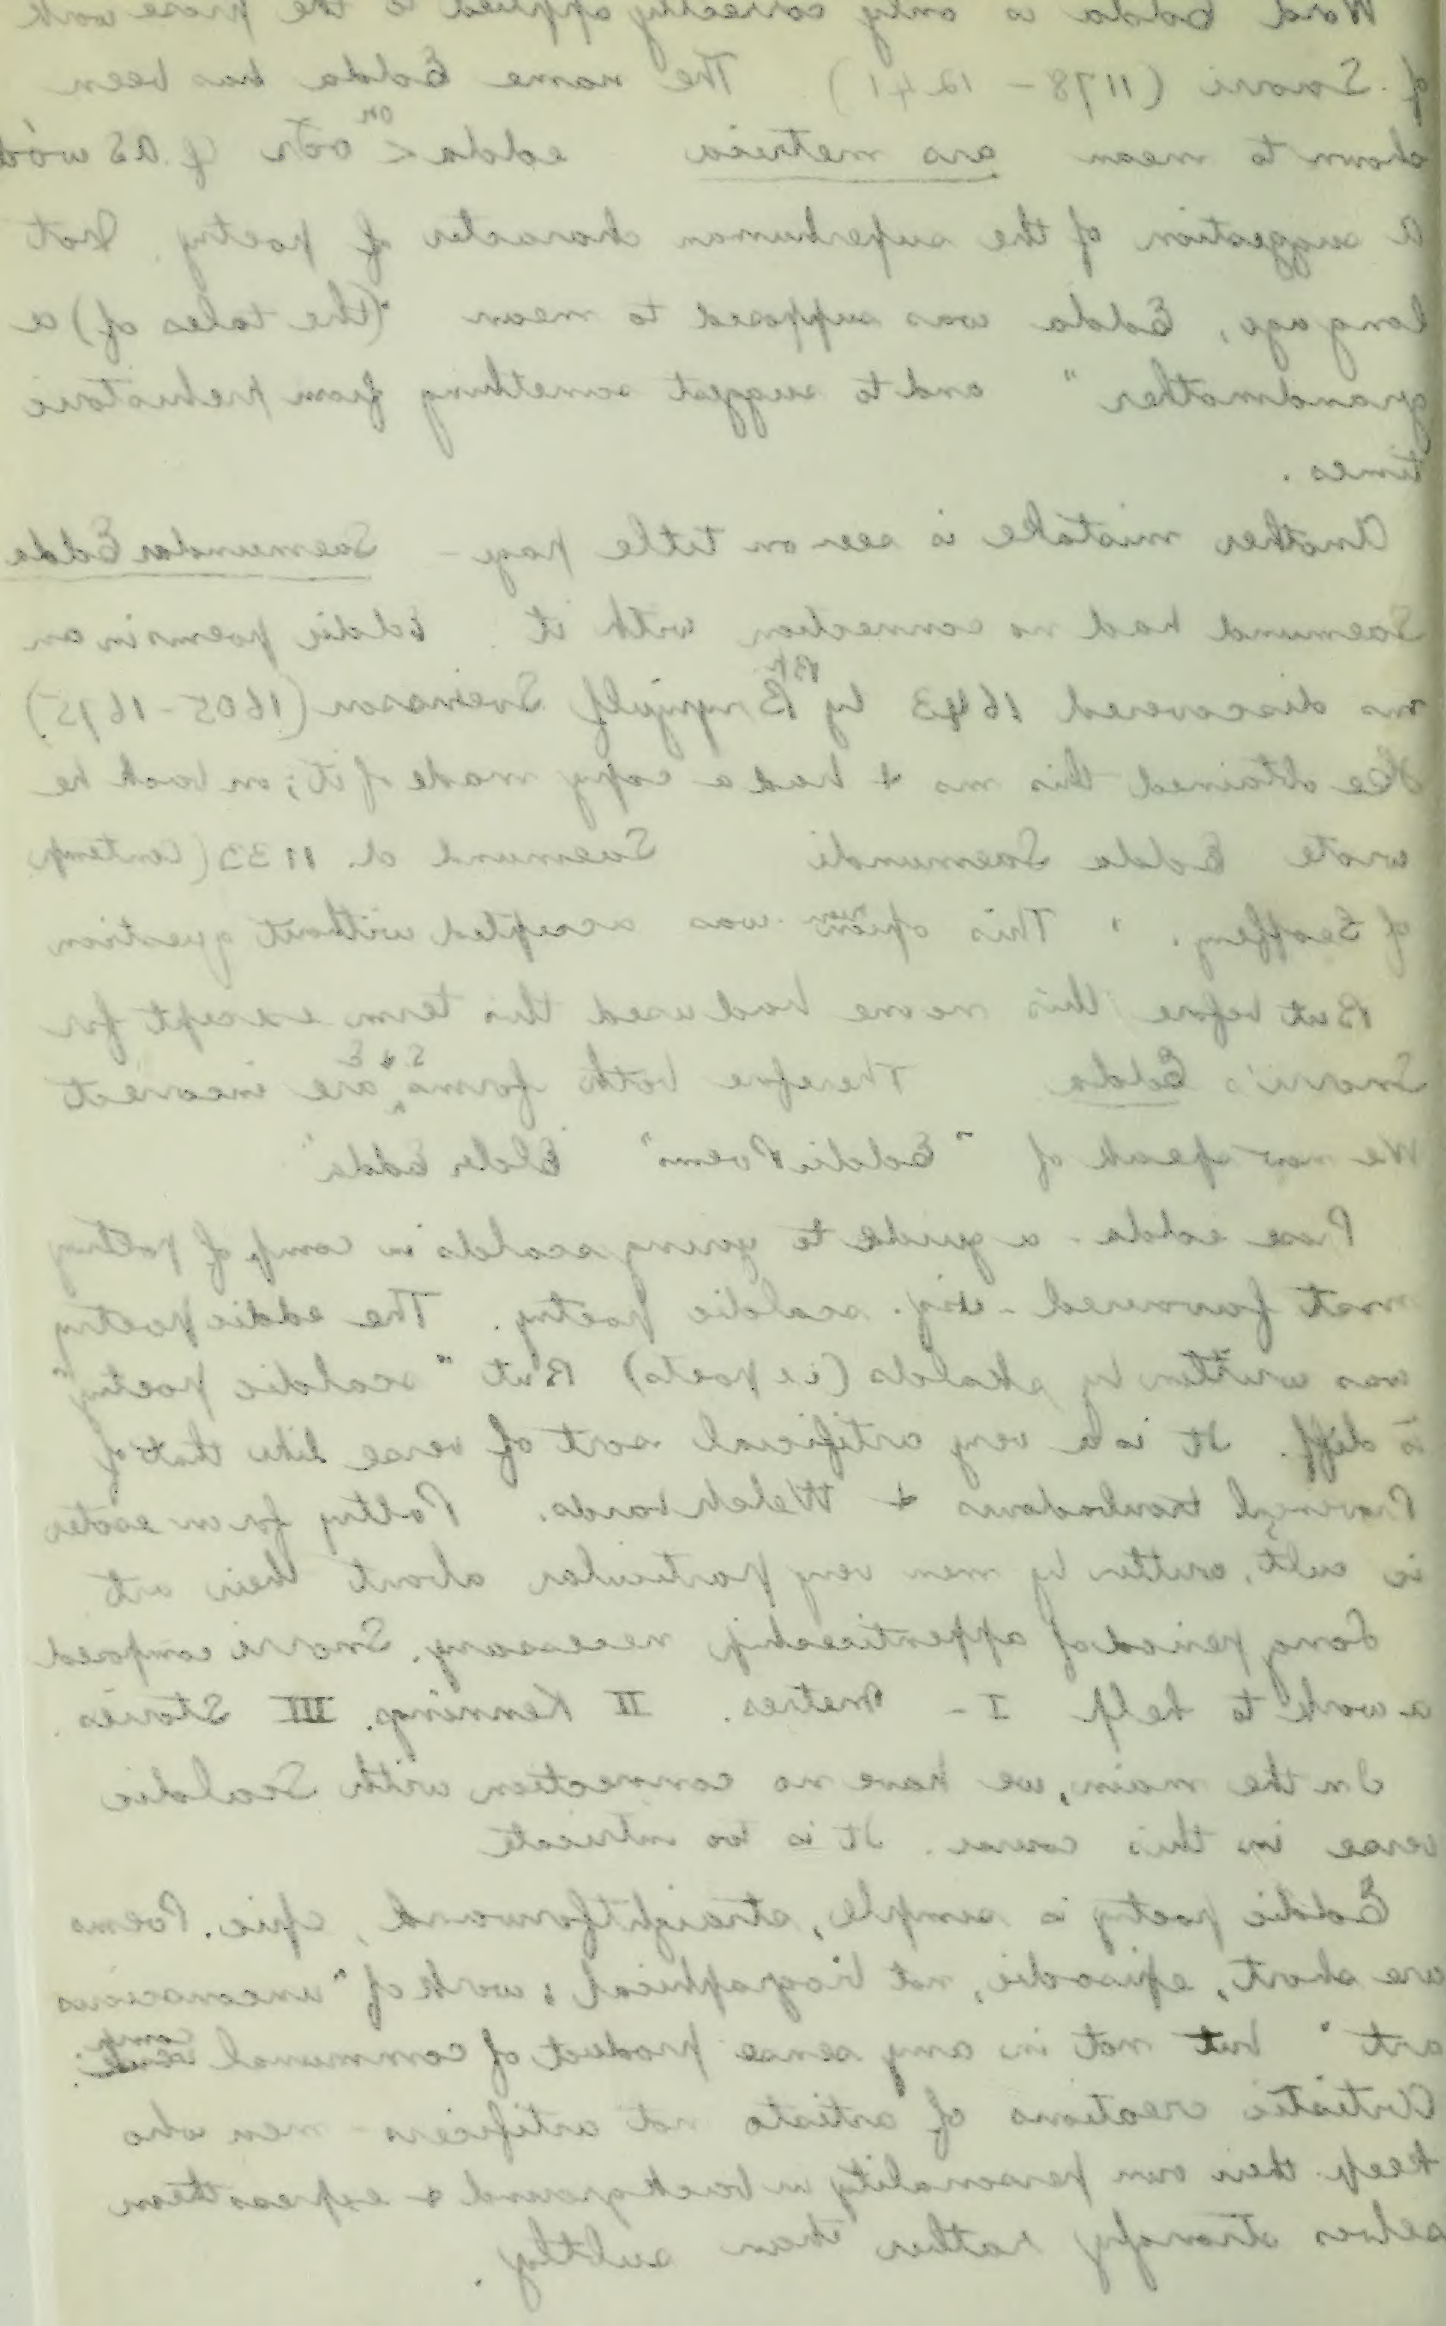 Word Edda is only correctly applied to the prose work
of Snorri (1178 - 1241) The name Edda has been
shown to mean ars metrica edda < ON óðr cf AS wód
A suggestion of the superhuman character of poetry. Not
long ago, Edda was supposed to mean "(the tales of) a
grandmother" and to suggest something from prehistoric
times.
Another mistake is seen on title page - Saemundar Edda
Saemund had no connection with it. Eddic poems in an
ms discovered 1643 by Bp Brynjulf Sveinsson (1605 - 1675)
He obtained this ms & had a copy made of it; on back he
wrote Edda Saemundi Saemund d. 1133 (contemp
of Geoffrey. This opinion was accepted without question
But before this no one had used this term except for
Snorri's Edda Therefore both forms S & E are incorrect
We now speak of "Eddic Poems" Elder Edda"
Prose edda - a guide to young scalds in comp. of poetry
most favoured - viz. scaldic poetry. The eddic poetry
was written by skalds (ie poets) But "scaldic poetry"
is diff. It is a very artificial sort of verse like that of
Provençal troubadours & Welsh bards. Poetry for an esoteric
cult, written by men very particular about their art
Long period of apprenticeship necessary. Snorri composed
a work to help I - Metres. II Kennings. III Stories.
In the main, we have no connection with Scaldic
verse in this course. It is too intricate
Eddic poetry is simple, straightforward, epic. Poems
are short, episodic, not biographical; work of "unconscious
art" but not in any sense product of communal comp.
Artistic creations of artists not artificers - men who
keep their own personality in background & express them
selves strongly rather than subtly.